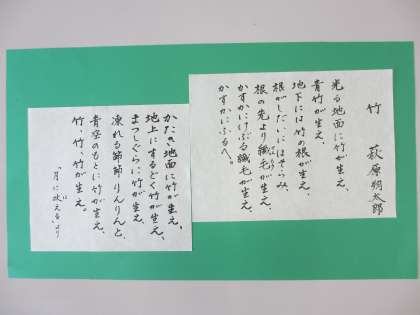 竹　萩原朔太郎
光る地面に竹が生え、
青竹が生え、
地下には竹の根が生え、
根がしだいにほそらみ、
根の先より繊毛が生え、
かすかにけぶる繊毛が生え、
かすかにふるへ。
かたき地面に竹が生え、
地上にするどく竹が生え、
まつしぐらに竹が生え、
凍れる節節りんりんと、
青空のもとに竹が生え、
竹、竹、竹が生え。
「月に吠える」より